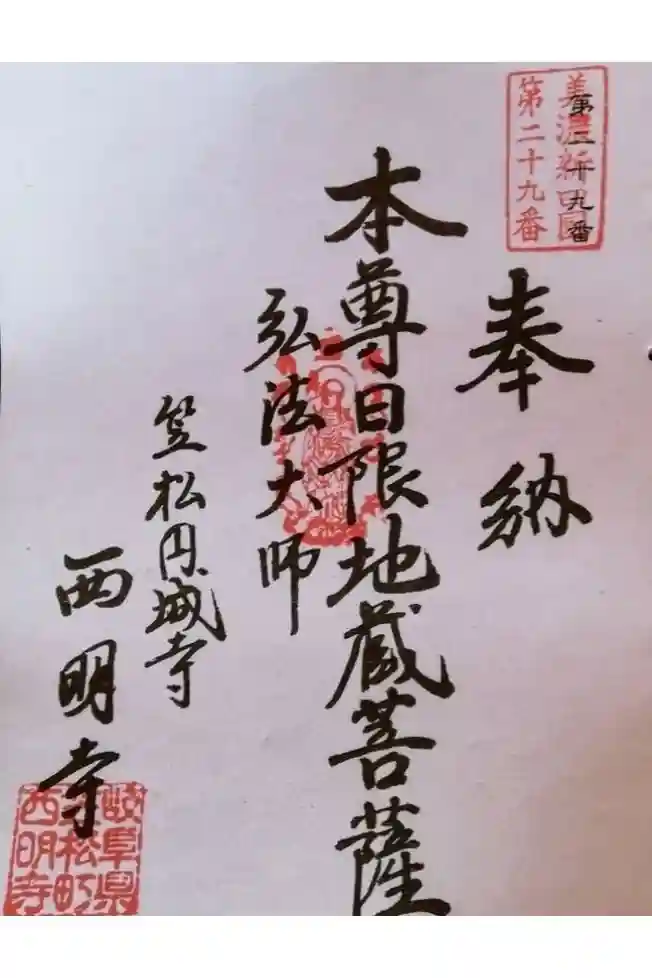 美濃新四国
第二十九番
第二十九番
奉納
本尊日限地蔵菩薩
弘法大師
笠松円城寺
西明寺
岐阜県
笠松町
西明寺